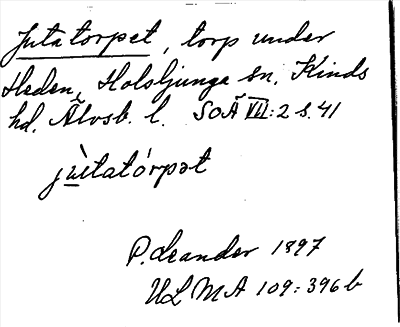 Jutatorpet, torp under
Heden, Holsljunga sn, Kinds
hd. Älvsb. l. SOÄ VII:2 s. 41
jùtatórpət
P. Leander 1897
ULMA 109:396b